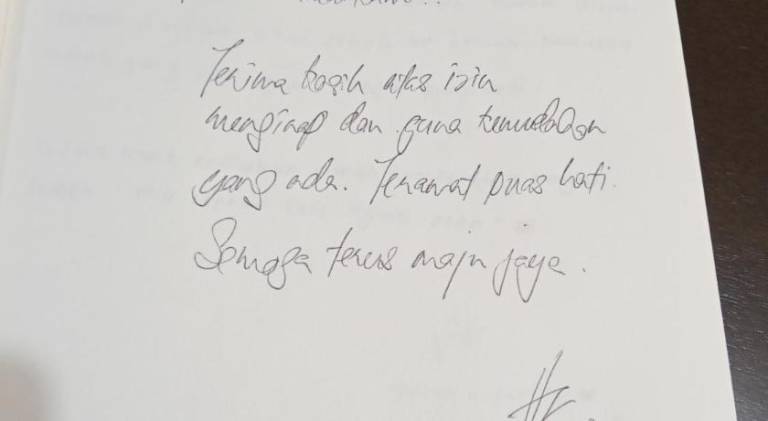 Terima kasih atas izin
menginap dan guna kemudahan
yang ada. Teramat puas hati.
Semoga terus maju jaya.